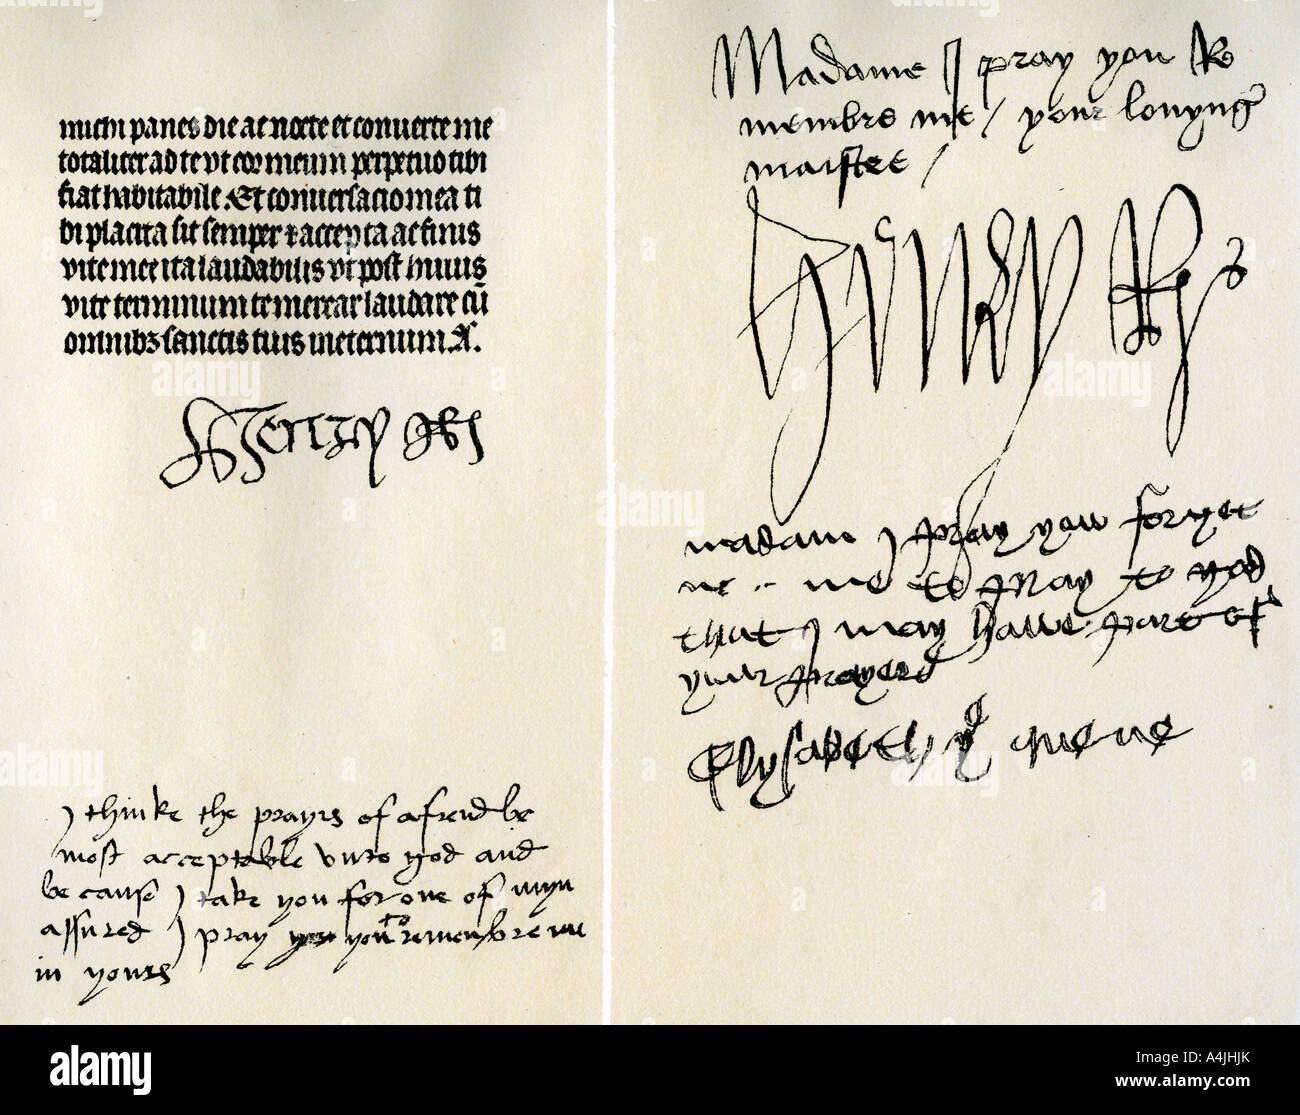 michi panes die ac nocte et conuerte me
totaliter ad te vt cor meum perpetuo tibi
fiat habitabile. Et conuersacio mea ti
bi placita sit semper & accepta ac finis
vite mee ita laudabilis vt post huius
vite terminum te merear laudare cū
omnibꝫ sanctis tuis ineternum. A.
Henry
I thinke the prayrs of a frend be
most acceptable vnto god and
be cause I take you for one of myn
assured I pray you to remenbre me
in yours
Madame I pray you Re
membre me / your louyng
maistre /
Henry R
madam I pray you forget
not me to pray to god
that I may haue part of
your prayers
Elysabeth ye quene
alamy
Image ID: A4JHJK
www.alamy.com